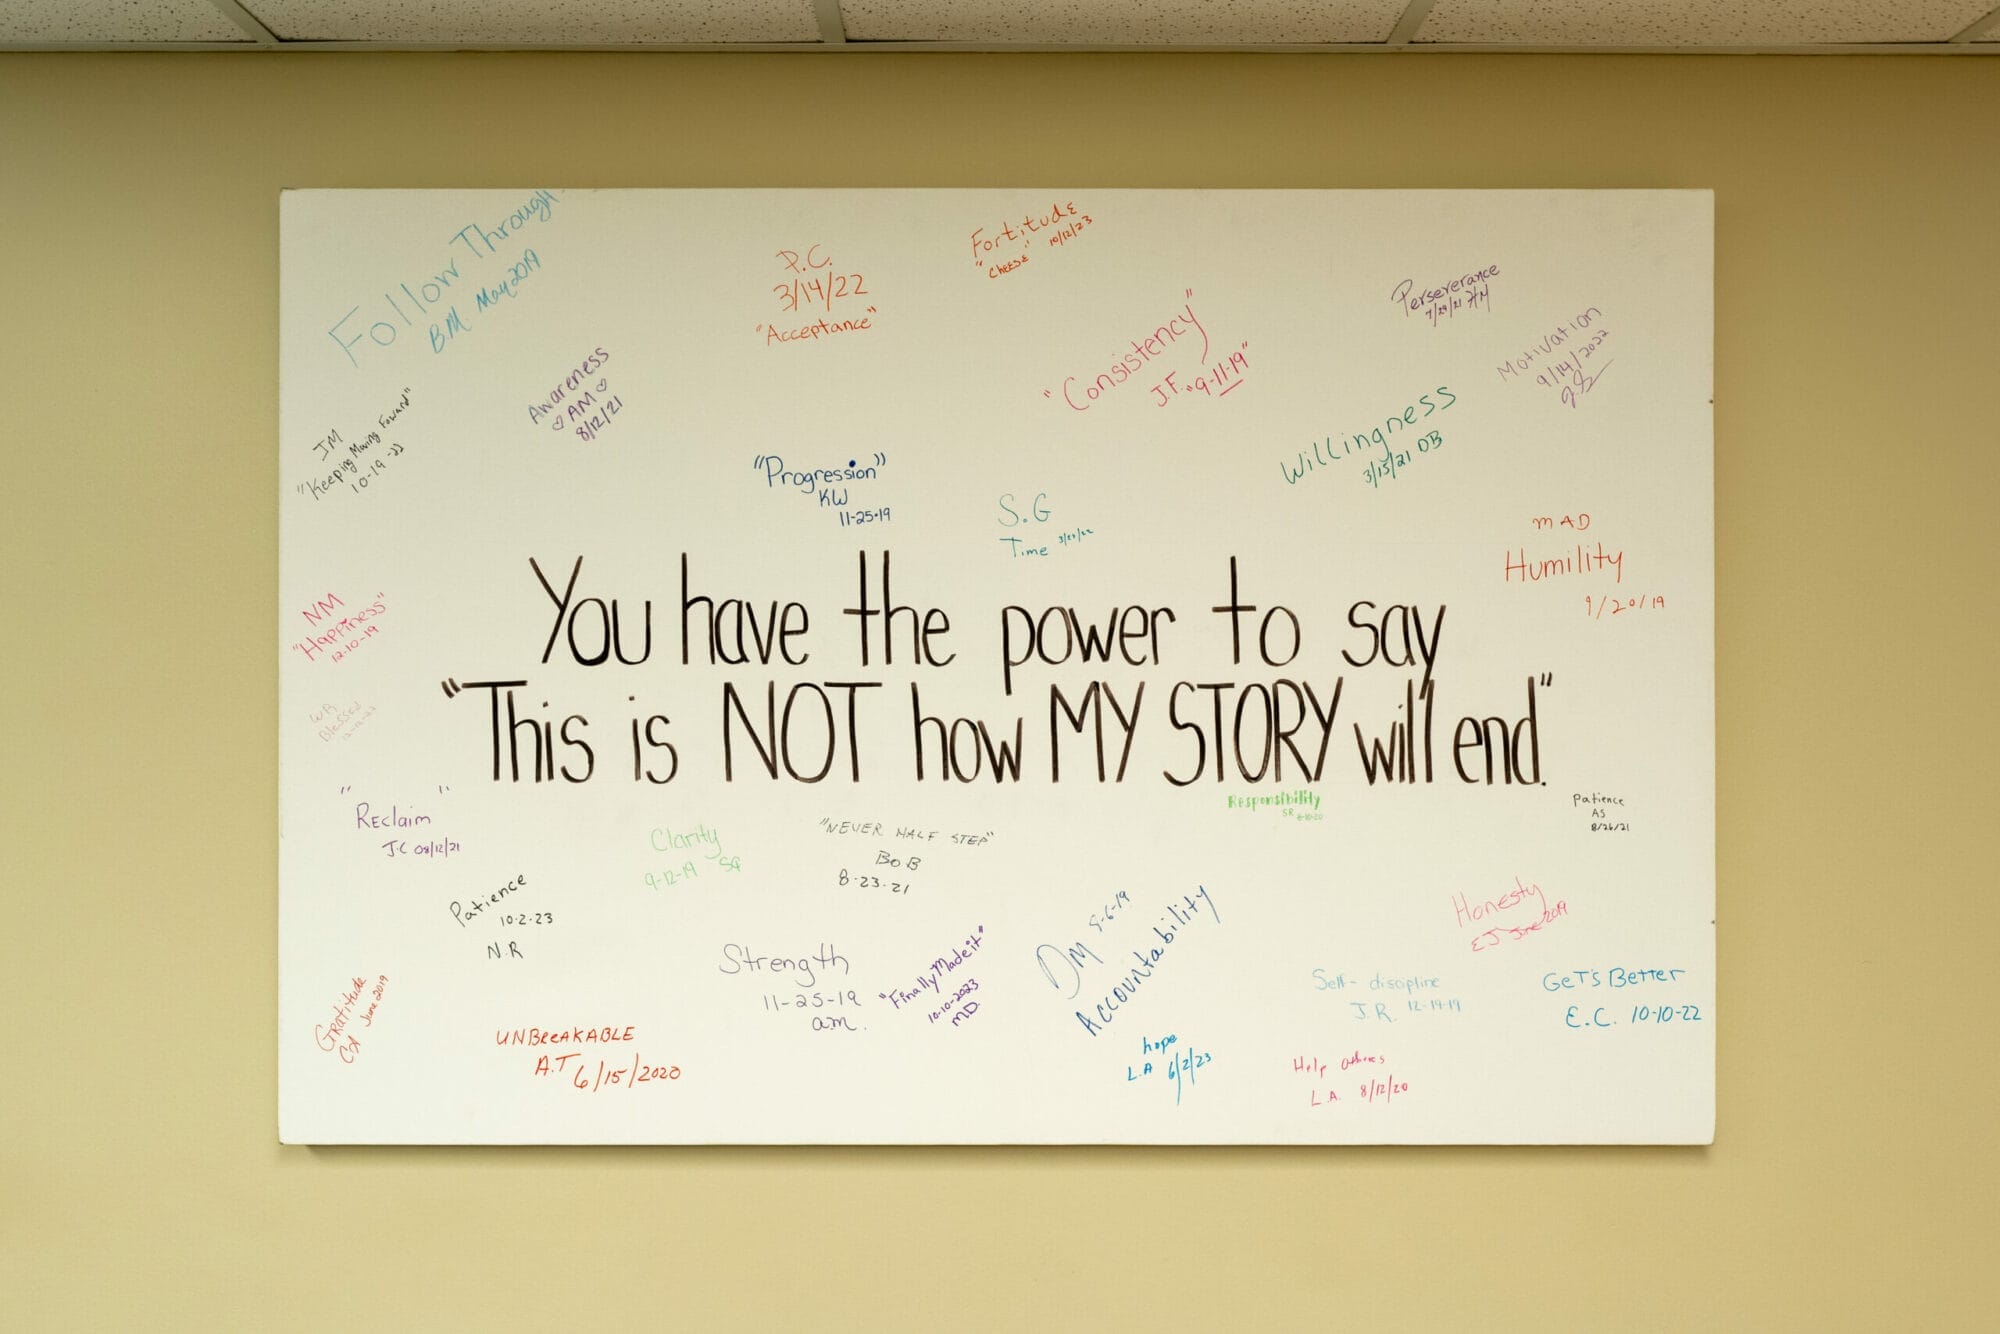 Follow Through
B.M. May 2019
P.C.
3/14/22
"Acceptance"
Fortitude
"Cheese" 10/12/23
Perseverance
7/29/21 HM
Motivation
9/14/2022
"Consistency"
J.F. "9-11-19"
Awareness
♡ AM ♡
8/12/21
JM
"Keeping Moving Foward"
10-19-22
Willingness
3/15/21 DB
"Progression"
KW
11-25-19
S.G
Time
MAD
Humility
9/20/19
You have the power to say
"This is NOT how MY STORY will end."
NM
"Happiness"
12-10-19
WR
Blessed
12-12-22
"Reclaim"
J.C 08/12/21
Clarity
9-12-19 SG
"NEVER HALF STEP"
BOB
8-23-21
Responsibility
SR
Patience
AS
8/26/21
Patience
10-2-23
N.R
Strength
11-25-19
am.
"Finally Made it"
10-10-2023
MD.
DM
Accountability
Honesty
EJ June 2019
Self-discipline
J.R. 12-19-19
GeT's Better
E.C. 10-10-22
Gratitude
CA June 2019
UNBREAKABLE
A.T 6/15/2020
hope
L.A 6/2/23
Help others
L.A. 8/12/20